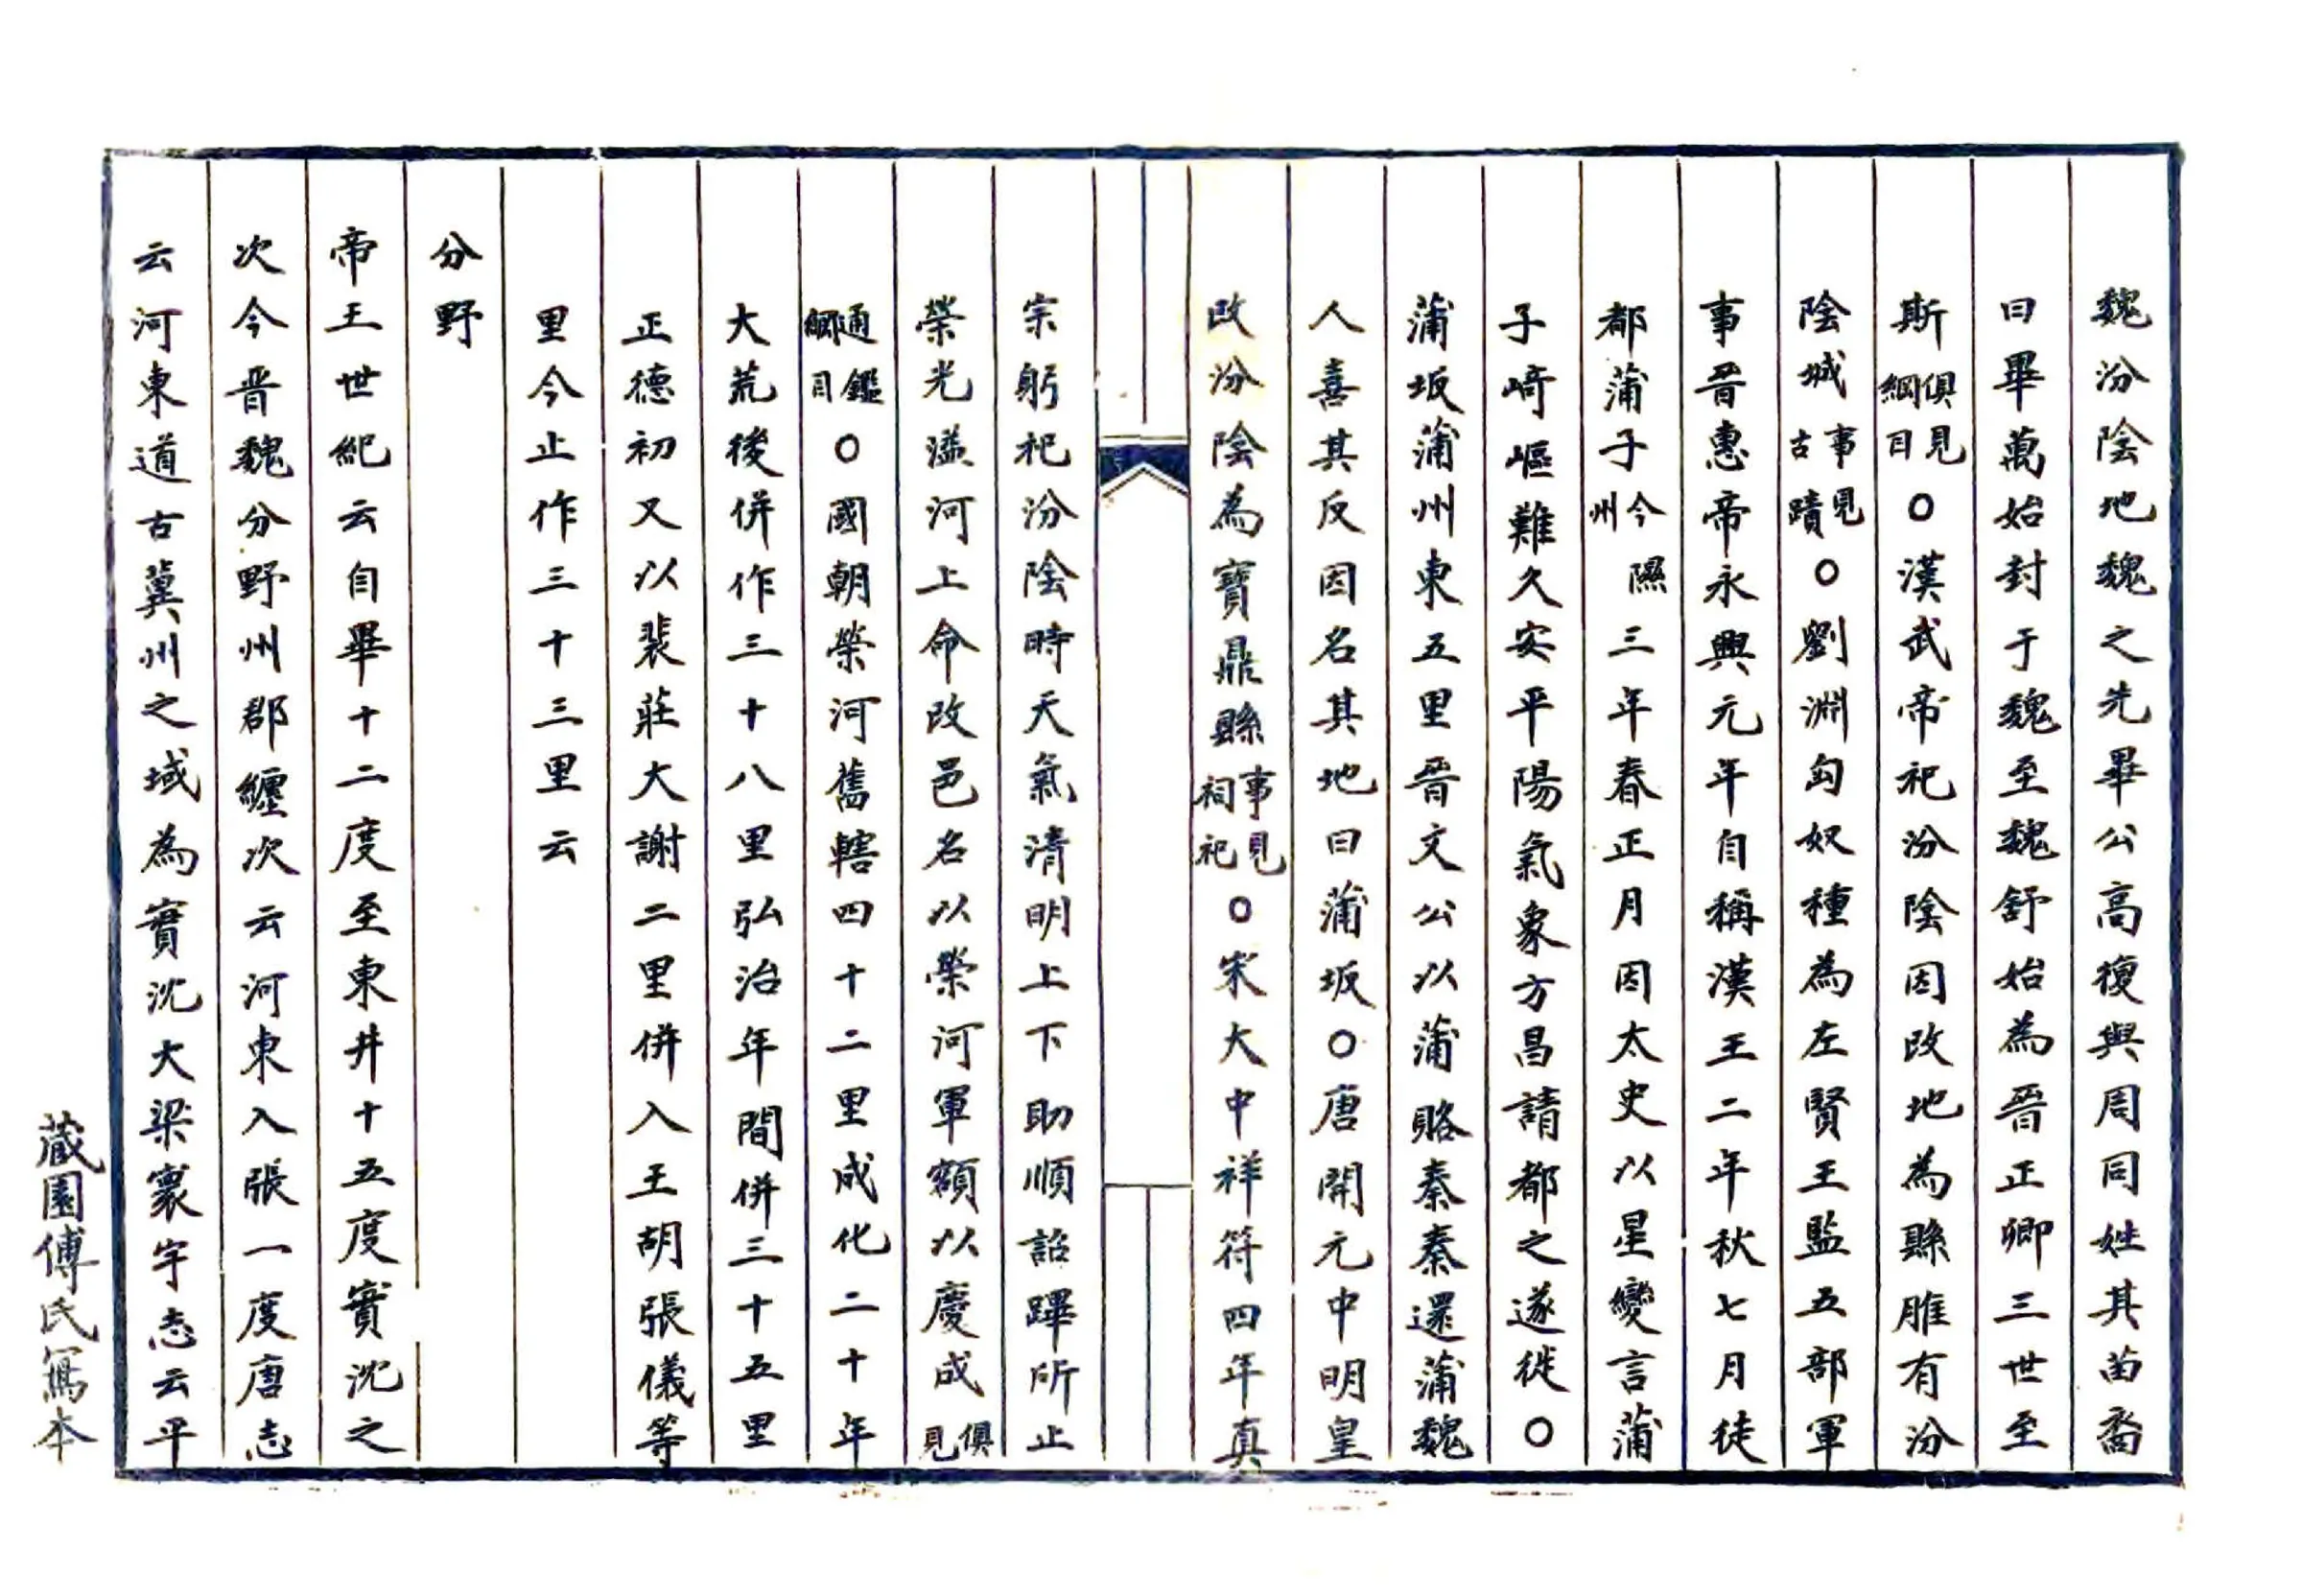 魏汾陰地魏之先畢公高復與周同姓其苗裔
曰畢萬始封于魏至魏舒始為晉正卿三世至
斯俱見綱目○漢武帝祀汾陰因改地為縣脽有汾
陰城事見古蹟○劉淵匈奴種為左賢王監五部軍
事晉惠帝永興元年自稱漢王二年秋七月徒
都蒲子今隰州三年春正月因太史以星變言蒲
子崎嶇難久安平陽氣象方昌請都之遂徙○
蒲坂蒲州東五里晉文公以蒲賂秦秦還蒲魏
人喜其反因名其地曰蒲坂○唐開元中明皇
改汾陰為寶鼎縣事見祠祀○宋大中祥符四年真
宗躬祀汾陰時天氣清明上下助順詔蹕所止
榮光溢河上命改邑名以榮河軍額以慶成俱見
通鑑綱目○國朝榮河舊轄四十二里成化二十年
大荒後併作三十八里弘治年間併三十五里
正德初又以裴莊大謝二里併入王胡張儀等
里今止作三十三里云
分野
帝王世紀云自畢十二度至東井十五度實沈之
次今晉魏分野州郡纏次云河東入張一度唐志
云河東道古冀州之域為實沈大梁寰宇志云平
藏園傅氏寫本